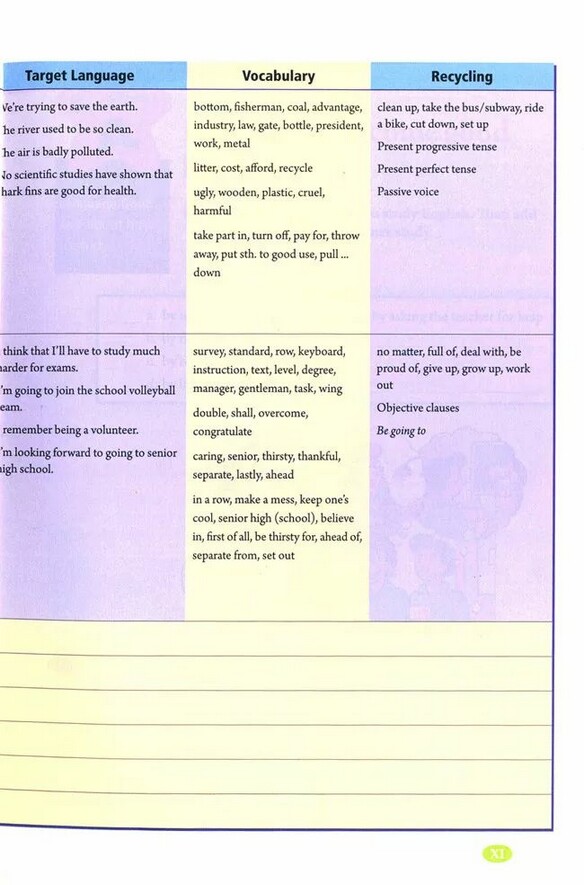 Target Language
Vocabulary
Recycling
Ve're trying to save the earth.
he river used to be so clean.
he air is badly polluted.
No scientific studies have shown that
hark fins are good for health.
bottom, fisherman, coal, advantage,
industry, law, gate, bottle, president,
work, metal
litter, cost, afford, recycle
ugly, wooden, plastic, cruel,
harmful
take part in, turn off, pay for, throw
away, put sth. to good use, pull ...
down
clean up, take the bus/subway, ride
a bike, cut down, set up
Present progressive tense
Present perfect tense
Passive voice
think that I'll have to study much
harder for exams.
'm going to join the school volleyball
eam.
remember being a volunteer.
'm looking forward to going to senior
igh school.
survey, standard, row, keyboard,
instruction, text, level, degree,
manager, gentleman, task, wing
double, shall, overcome,
congratulate
caring, senior, thirsty, thankful,
separate, lastly, ahead
in a row, make a mess, keep one's
cool, senior high (school), believe
in, first of all, be thirsty for, ahead of,
separate from, set out
no matter, full of, deal with, be
proud of, give up, grow up, work
out
Objective clauses
Be going to
XI